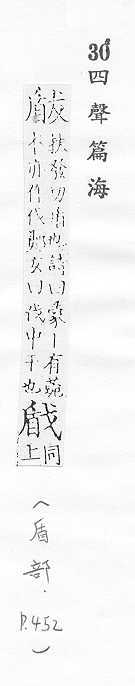 30 四聲篇海
瞂
扶發切盾也詩曰蒙丨有菀
本亦作伐鄭玄曰伐中干也
同上
(盾部. P.452)